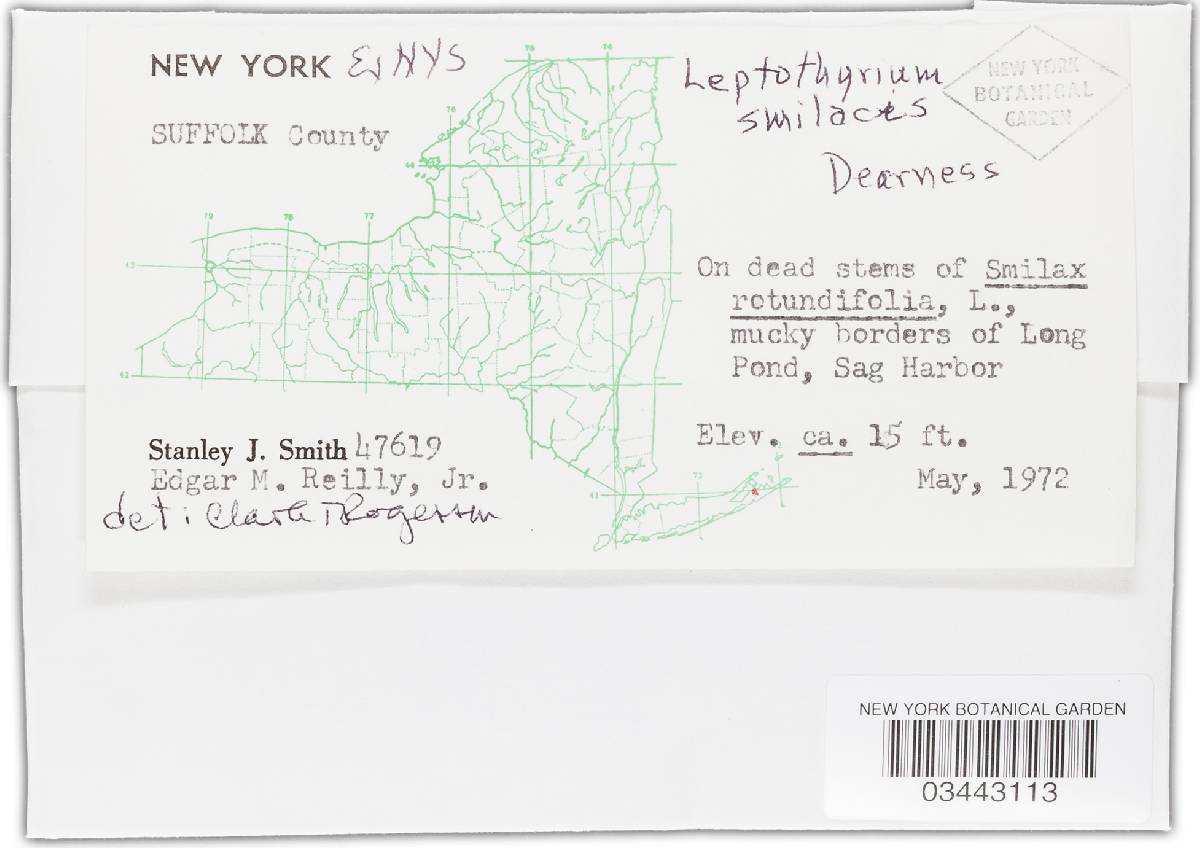 NEW YORK Ex NYS
SUFFOLK County
Leptothyrium
smilacis
Dearness
NEW YORK
BOTANICAL
GARDEN
On dead stems of Smilax
rotundifolia, L.,
mucky borders of Long
Pond, Sag Harbor
Elev. ca. 15 ft.
May, 1972
Stanley J. Smith 47619
Edgar M. Reilly, Jr.
det: Clark T Rogerson
79
78
77
76
75
74
44
43
42
41
73
NEW YORK BOTANICAL GARDEN
03443113